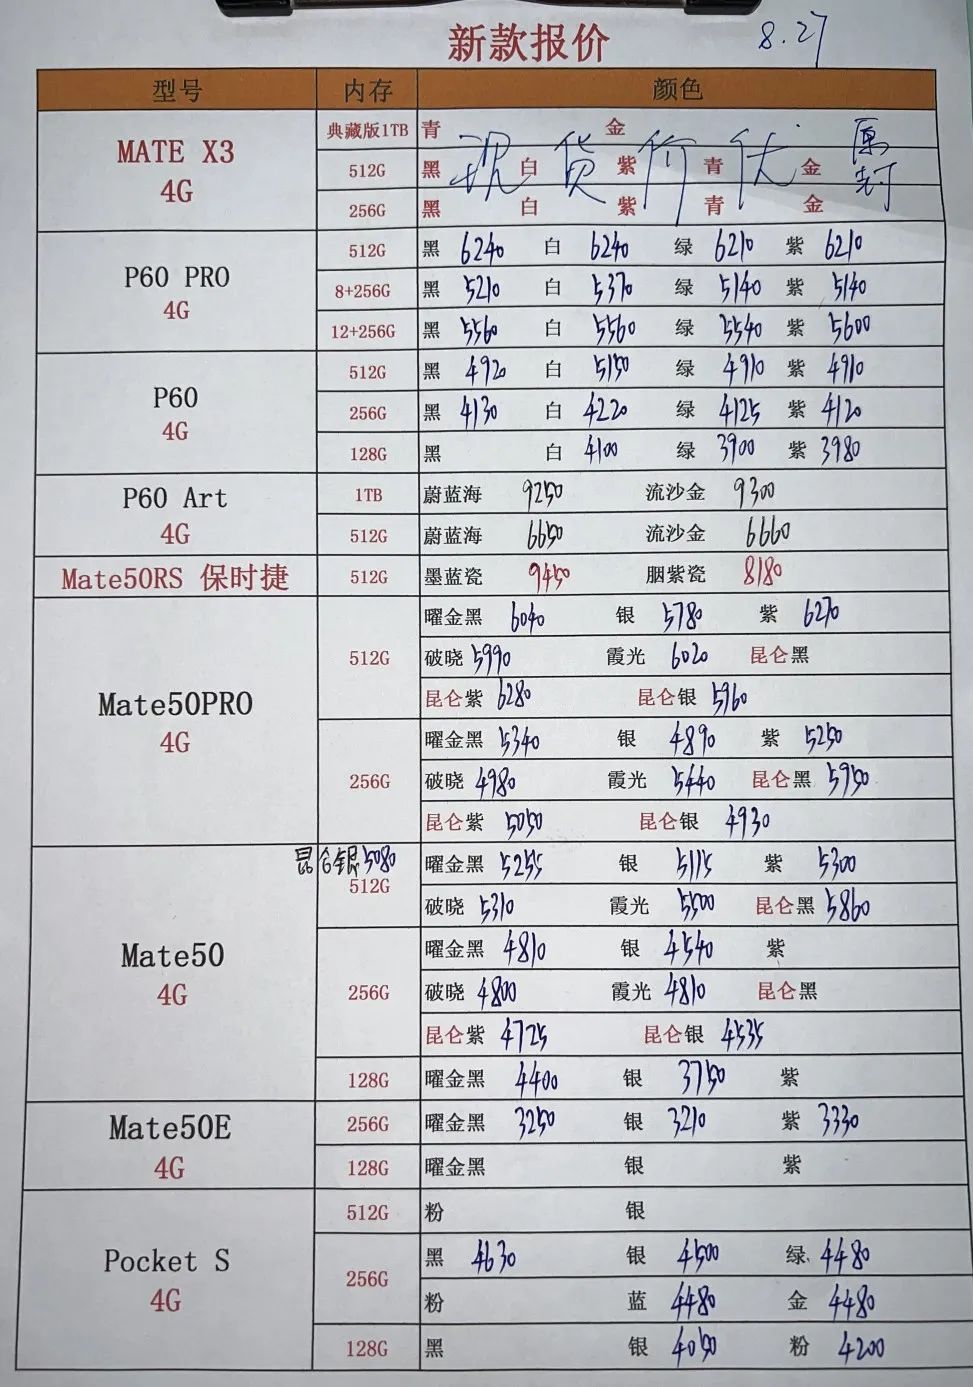 新款报价 8.27
型号 内存 颜色
MATE X3 4G
典藏版1TB 青 金
512G 黑 白 紫 青 金
256G 黑 白 紫 青 金
现货价优 原封
P60 PRO 4G
512G 黑 6240 白 6240 绿 6210 紫 6210
8+256G 黑 5210 白 5370 绿 5140 紫 5140
12+256G 黑 5560 白 5560 绿 5540 紫 5600
P60 4G
512G 黑 4920 白 5150 绿 4910 紫 4910
256G 黑 4130 白 4220 绿 4125 紫 4120
128G 黑 白 4100 绿 3900 紫 3980
P60 Art 4G
1TB 蔚蓝海 9250 流沙金 9300
512G 蔚蓝海 6650 流沙金 6660
Mate50RS 保时捷 512G 墨蓝瓷 9450 胭紫瓷 8180
Mate50PRO 4G
512G 曜金黑 6040 银 5780 紫 6270
破晓 5990 霞光 6020 昆仑黑
昆仑紫 6280 昆仑银 5960
256G 曜金黑 5340 银 4890 紫 5250
破晓 4980 霞光 5440 昆仑黑 5950
昆仑紫 5050 昆仑银 4930
Mate50 4G
昆仑银 5080
512G 曜金黑 5255 银 5115 紫 5300
破晓 5310 霞光 5500 昆仑黑 5860
256G 曜金黑 4810 银 4540 紫
破晓 4800 霞光 4810 昆仑黑
昆仑紫 4725 昆仑银 4535
128G 曜金黑 4400 银 3750 紫
Mate50E 4G
256G 曜金黑 3250 银 3210 紫 3330
128G 曜金黑 银 紫
Pocket S 4G
512G 粉 银
256G 黑 4630 银 4500 绿 4480
粉 蓝 4480 金 4480
128G 黑 银 4050 粉 4200